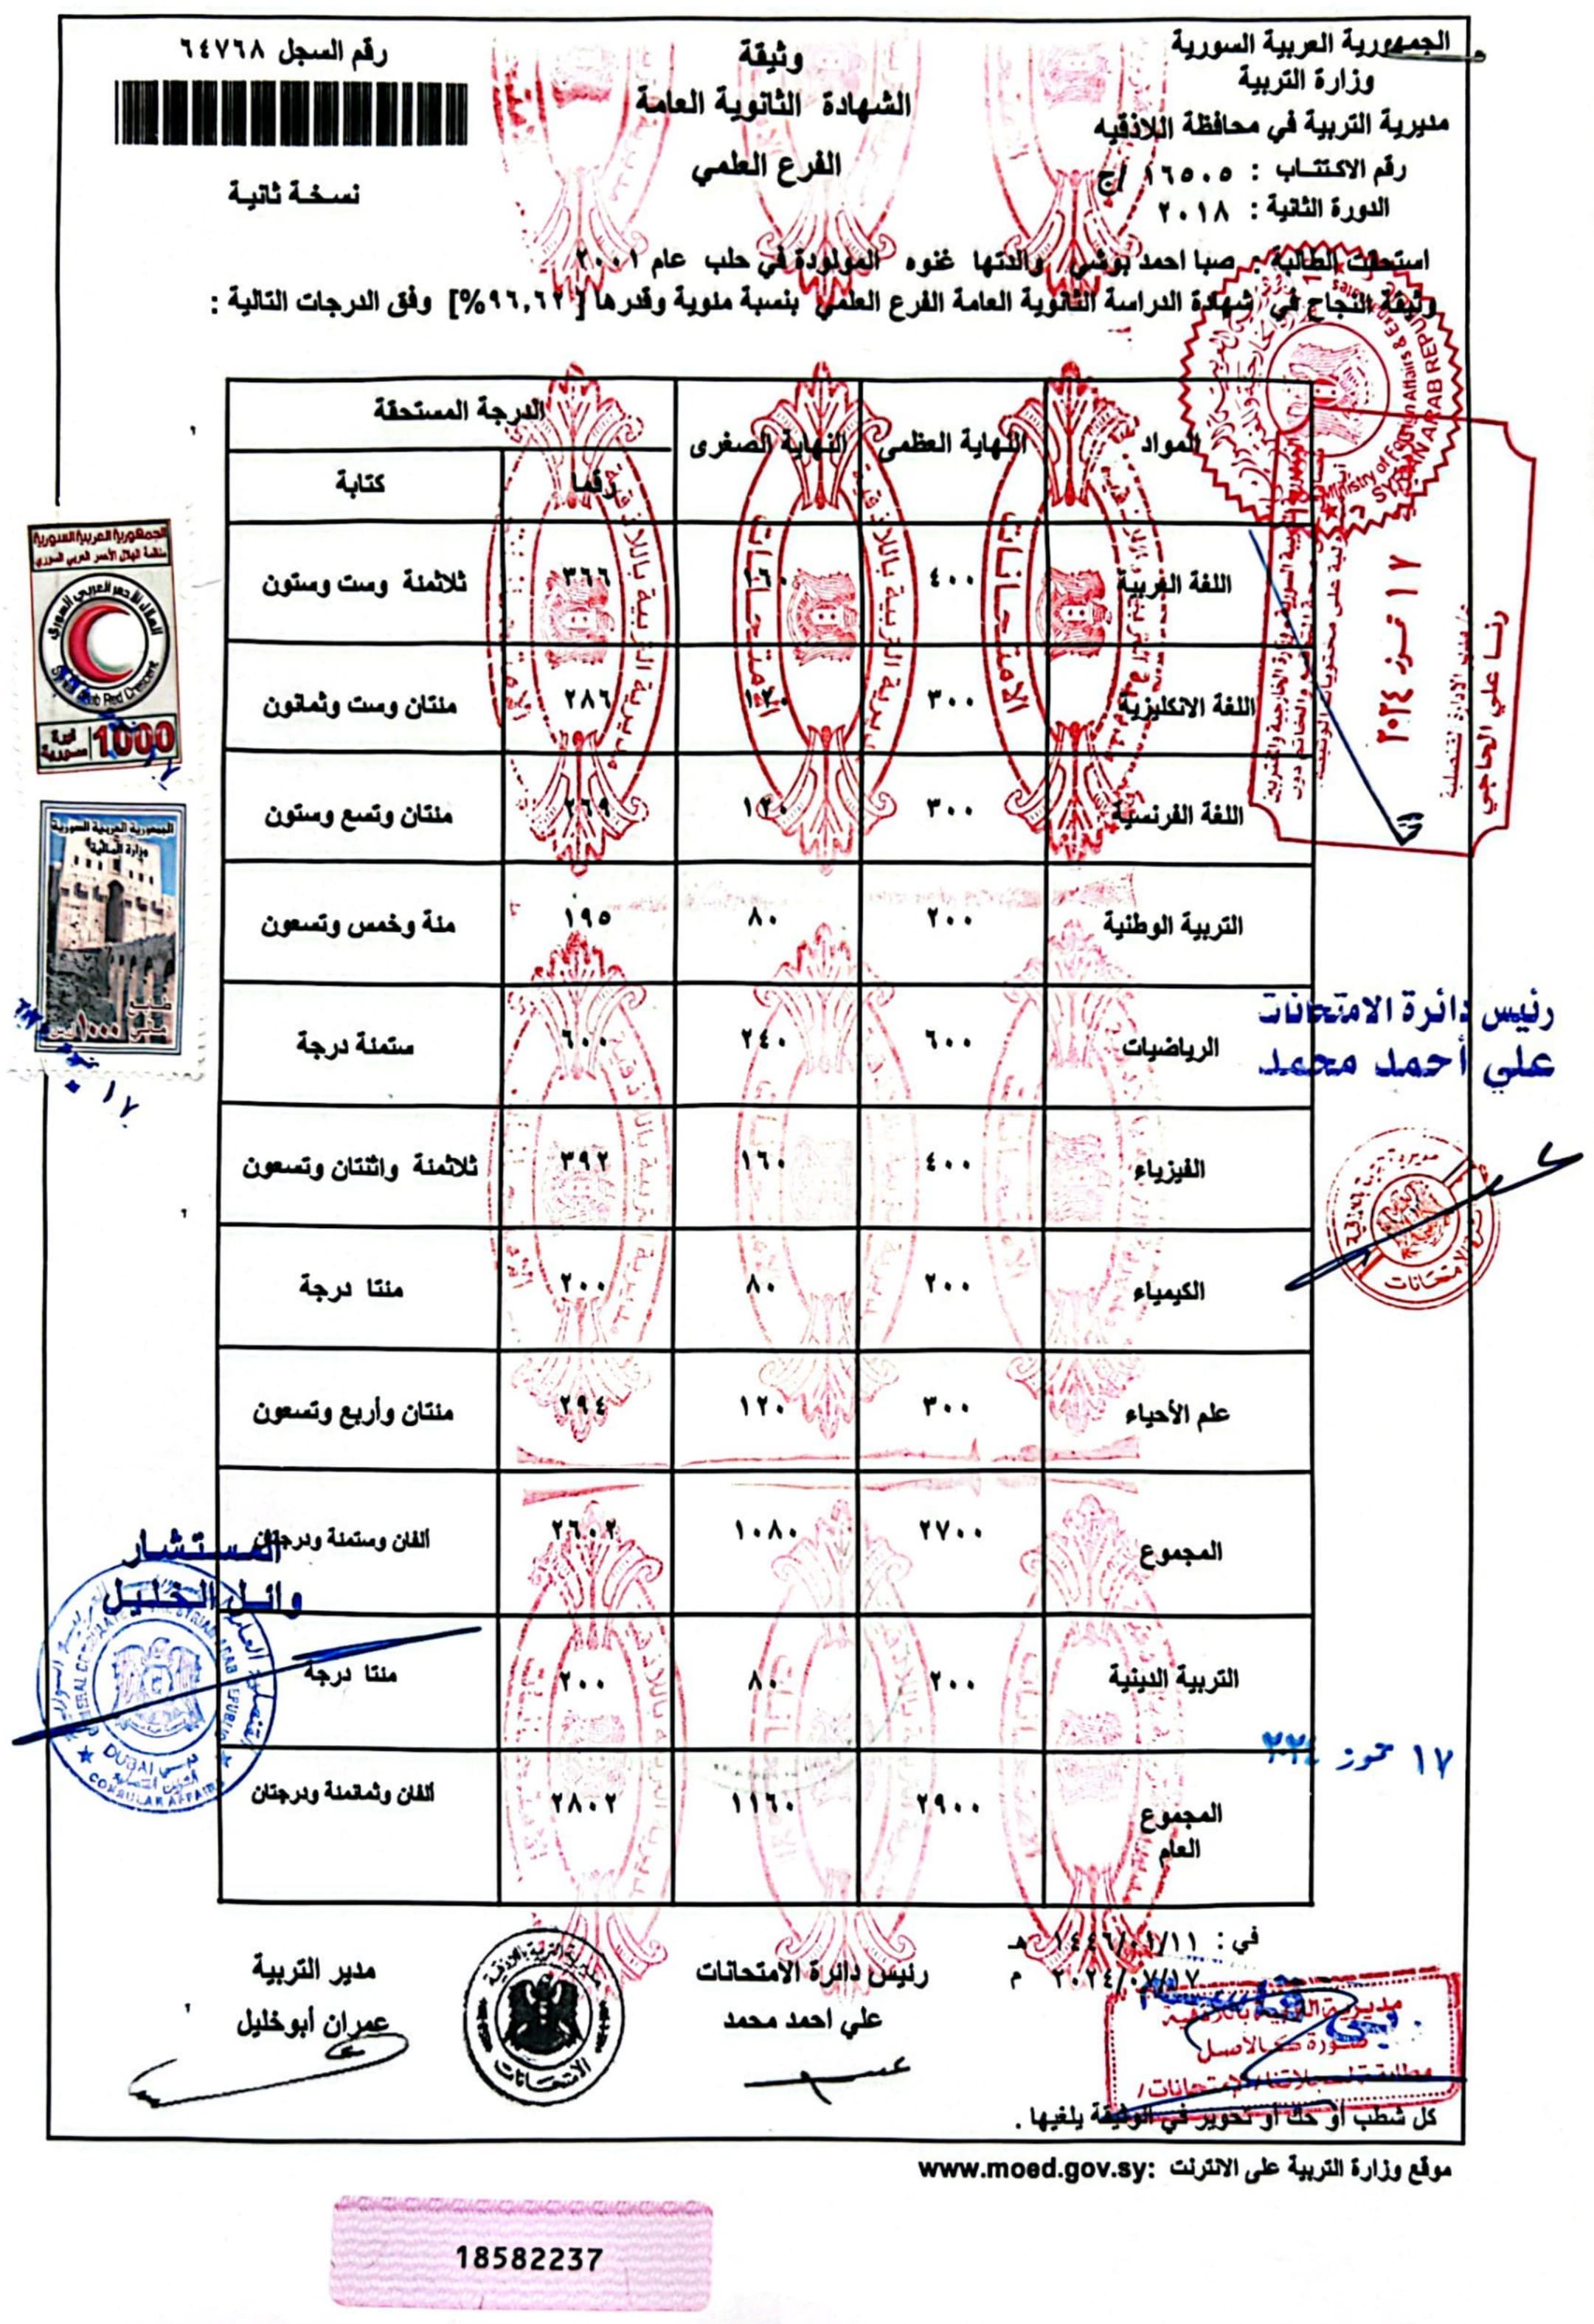 الجمهورية العربية السورية
وزارة التربية
مديرية التربية في محافظة اللاذقيه
رقم الاكتتاب : ١٦٥٠٥ /ج
الدورة الثانية : ٢٠١٨
وثيقة
الشهادة الثانوية العامة
الفرع العلمي
رقم السجل ٦٤٧٦٨
نسخة ثانية
استحقت الطالبة : صبا احمد بوشي والدتها غنوه المولودة في حلب عام ٢٠٠١
وثيقة النجاح في شهادة الدراسة الثانوية العامة الفرع العلمي بنسبة مئوية وقدرها [٩٦,٦٢%] وفق الدرجات التالية :
المواد النهاية العظمى النهاية الصغرى الدرجة المستحقة
رقما كتابة
اللغة العربية ٤٠٠ ١٦٠ ٣٦٦ ثلاثمئة وست وستون
اللغة الانكليزية ٣٠٠ ١٢٠ ٢٨٦ مئتان وست وثمانون
اللغة الفرنسية ٣٠٠ ١٢٠ ٢٦٩ مئتان وتسع وستون
التربية الوطنية ٢٠٠ ٨٠ ١٩٥ مئة وخمس وتسعون
الرياضيات ٦٠٠ ٢٤٠ ٦٠٠ ستمئة درجة
الفيزياء ٤٠٠ ١٦٠ ٣٩٢ ثلاثمئة واثنتان وتسعون
الكيمياء ٢٠٠ ٨٠ ٢٠٠ مئتا درجة
علم الأحياء ٣٠٠ ١٢٠ ٢٩٤ مئتان وأربع وتسعون
المجموع ٢٧٠٠ ١٠٨٠ ٢٦٠٢ الفان وستمئة ودرجتان
التربية الدينية ٢٠٠ ٨٠ ٢٠٠ مئتا درجة
المجموع العام ٢٩٠٠ ١١٦٠ ٢٨٠٢ الفان وثمانمئة ودرجتان
Ministry of Foreign Affairs &
SYRIAN ARAB REPUBLIC
١٧ تموز ٢٠٢٤
رنا علي الحاجي
الجمهورية العربية السورية
منظمة الهلال الأحمر العربي السوري
Syrian Arab Red Crescent
1000 ليرة سورية
الجمهورية العربية السورية
وزارة المالية
طابع مالي ١٠٠٠
رئيس دائرة الامتحانات
علي أحمد محمد
المستشار
وائل الخليل
DUBAI دبي
CONSULAR AFFAIRS
١٧ تموز
في : ١٤٤٦/٠١/١١ هـ
٢٠٢٤/٠٧/١٧ م
رئيس دائرة الامتحانات
علي احمد محمد
مدير التربية
عمران أبوخليل
مديرية التربية باللاذقية
الامتحانات
مديرية التربية باللاذقية
صورة كالأصل
كل شطب أو حك أو تحوير في الوثيقة يلغيها .
موقع وزارة التربية على الانترنت :www.moed.gov.sy
18582237